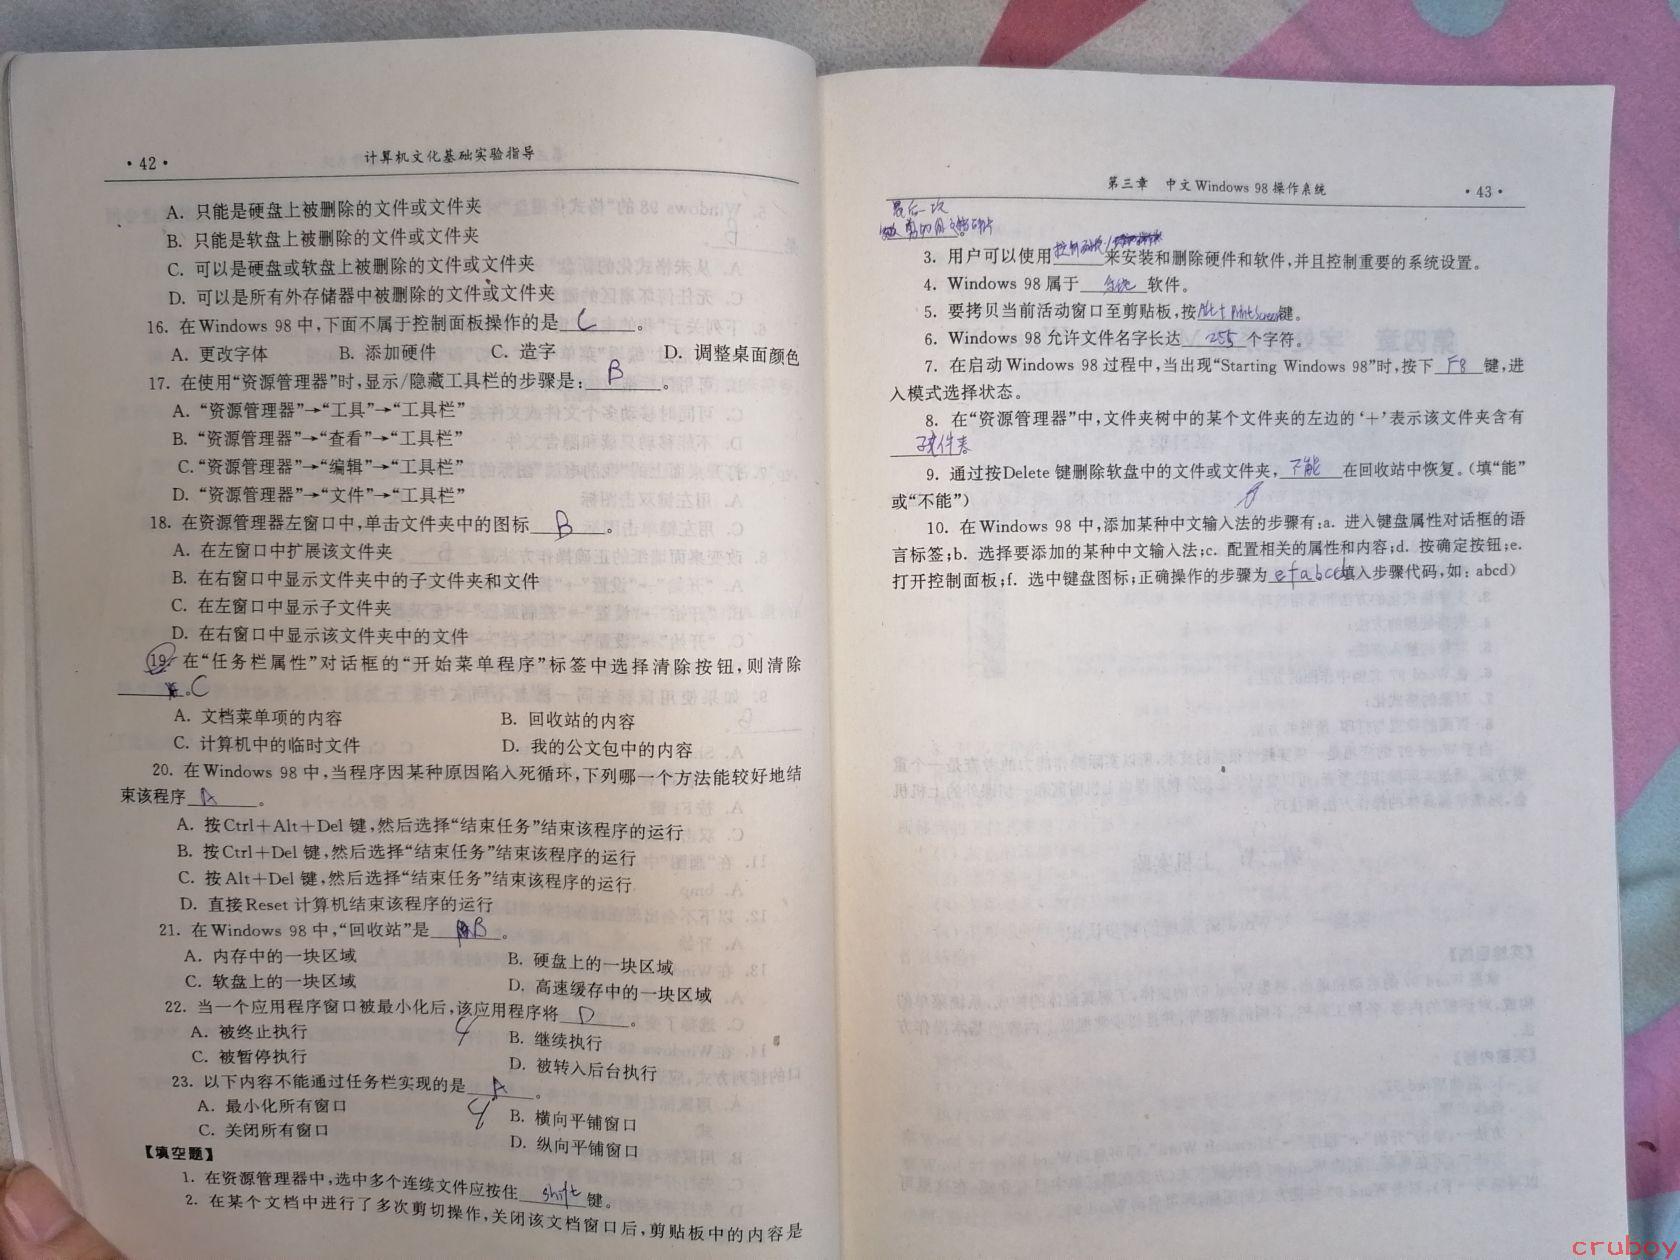 ·42·
计算机文化基础实验指导
A. 只能是硬盘上被删除的文件或文件夹
B. 只能是软盘上被删除的文件或文件夹
C. 可以是硬盘或软盘上被删除的文件或文件夹
D. 可以是所有外存储器中被删除的文件或文件夹
16. 在Windows 98中,下面不属于控制面板操作的是 C 。
A. 更改字体 B. 添加硬件 C. 造字 D. 调整桌面颜色
17. 在使用“资源管理器”时,显示/隐藏工具栏的步骤是: B 。
A. “资源管理器”→“工具”→“工具栏”
B. “资源管理器”→“查看”→“工具栏”
C.“资源管理器”→“编辑”→“工具栏”
D. “资源管理器”→“文件”→“工具栏”
18. 在资源管理器左窗口中,单击文件夹中的图标 B 。
A. 在左窗口中扩展该文件夹
B. 在右窗口中显示文件夹中的子文件夹和文件
C. 在左窗口中显示子文件夹
D. 在右窗口中显示该文件夹中的文件
19. 在“任务栏属性”对话框的“开始菜单程序”标签中选择清除按钮,则清除
。C
A. 文档菜单项的内容 B. 回收站的内容
C. 计算机中的临时文件 D. 我的公文包中的内容
20. 在Windows 98中,当程序因某种原因陷入死循环,下列哪一个方法能较好地结
束该程序 A 。
A. 按Ctrl+Alt+Del 键,然后选择“结束任务”结束该程序的运行
B. 按Ctrl+Del 键,然后选择“结束任务”结束该程序的运行
C. 按Alt+Del 键,然后选择“结束任务”结束该程序的运行
D. 直接Reset 计算机结束该程序的运行
21. 在Windows 98中,“回收站”是 B 。
A. 内存中的一块区域 B. 硬盘上的一块区域
C. 软盘上的一块区域 D. 高速缓存中的一块区域
22. 当一个应用程序窗口被最小化后,该应用程序将 D 。
A. 被终止执行 B. 继续执行
C. 被暂停执行 D. 被转入后台执行
23. 以下内容不能通过任务栏实现的是 A 。
A. 最小化所有窗口 B. 横向平铺窗口
C. 关闭所有窗口 D. 纵向平铺窗口
【填空题】
1. 在资源管理器中,选中多个连续文件应按住 shift 键。
2. 在某个文档中进行了多次剪切操作,关闭该文档窗口后,剪贴板中的内容是
第三章 中文Windows 98操作系统
·43·
最后一次
剪切的
3. 用户可以使用 控制面板 来安装和删除硬件和软件,并且控制重要的系统设置。
4. Windows 98属于 系统 软件。
5. 要拷贝当前活动窗口至剪贴板,按Alt+PrintScreen键。
6. Windows 98允许文件名字长达 255 个字符。
7. 在启动Windows 98过程中,当出现“Starting Windows 98”时,按下 F8 键,进
入模式选择状态。
8. 在“资源管理器”中,文件夹树中的某个文件夹的左边的‘+’表示该文件夹含有
子文件夹
9. 通过按Delete 键删除软盘中的文件或文件夹, 不能 在回收站中恢复。(填“能”
或“不能”)
10. 在Windows 98中,添加某种中文输入法的步骤有:a. 进入键盘属性对话框的语
言标签;b. 选择要添加的某种中文输入法;c. 配置相关的属性和内容;d. 按确定按钮;e.
打开控制面板;f. 选中键盘图标;正确操作的步骤为 efabcd填入步骤代码,如: abcd)
cruboy